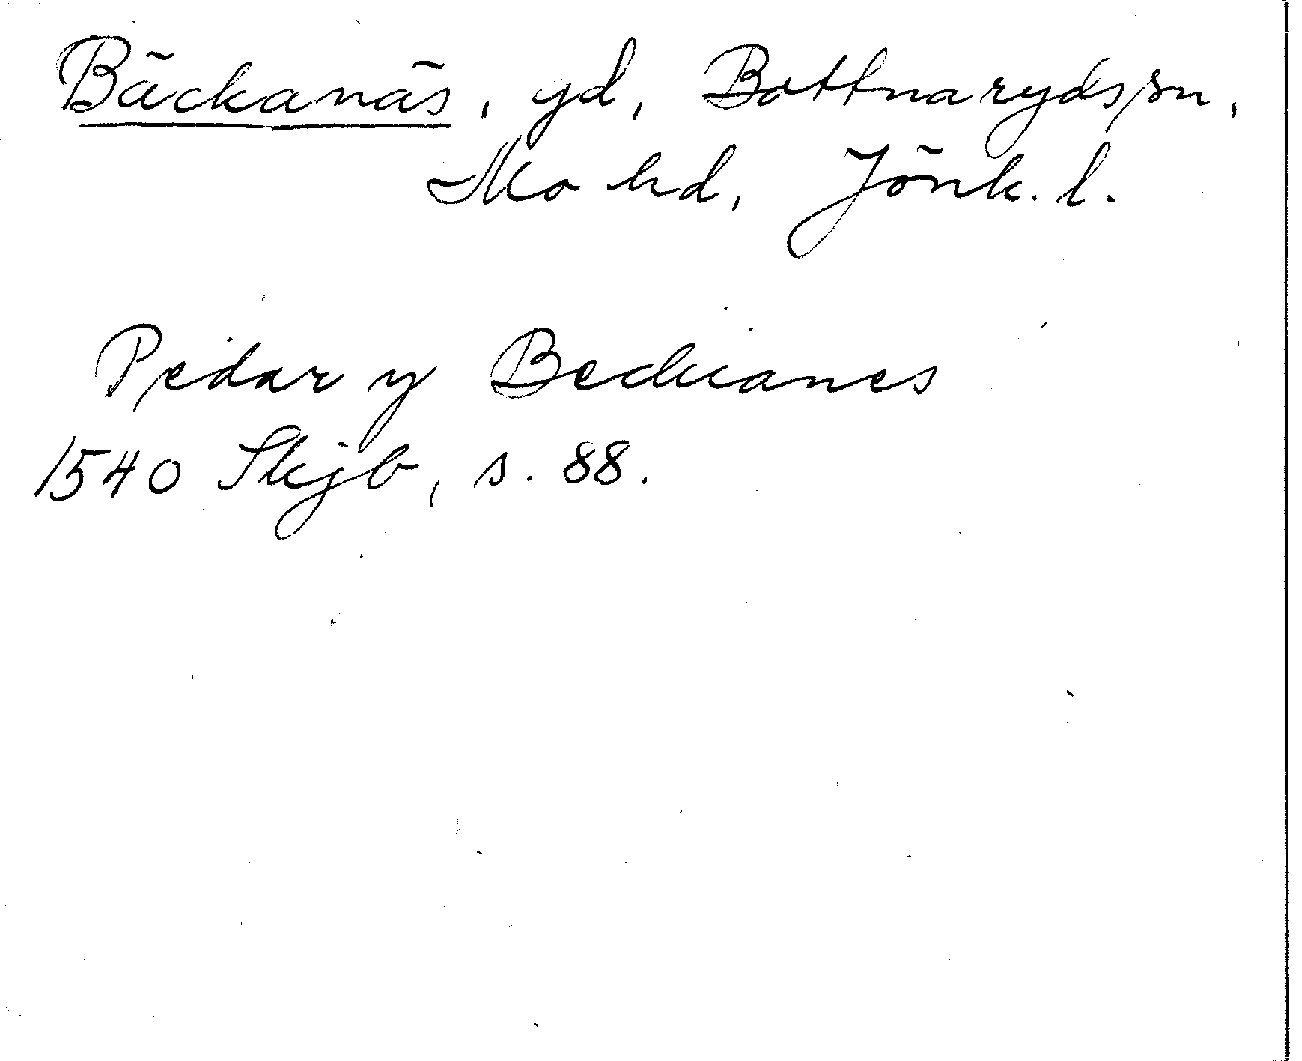 Bäckanäs, gd, Bottnaryds sn,
Mo hd, Jönk. l.
Pedar y Beckanes
1540 Skjb, s. 88.